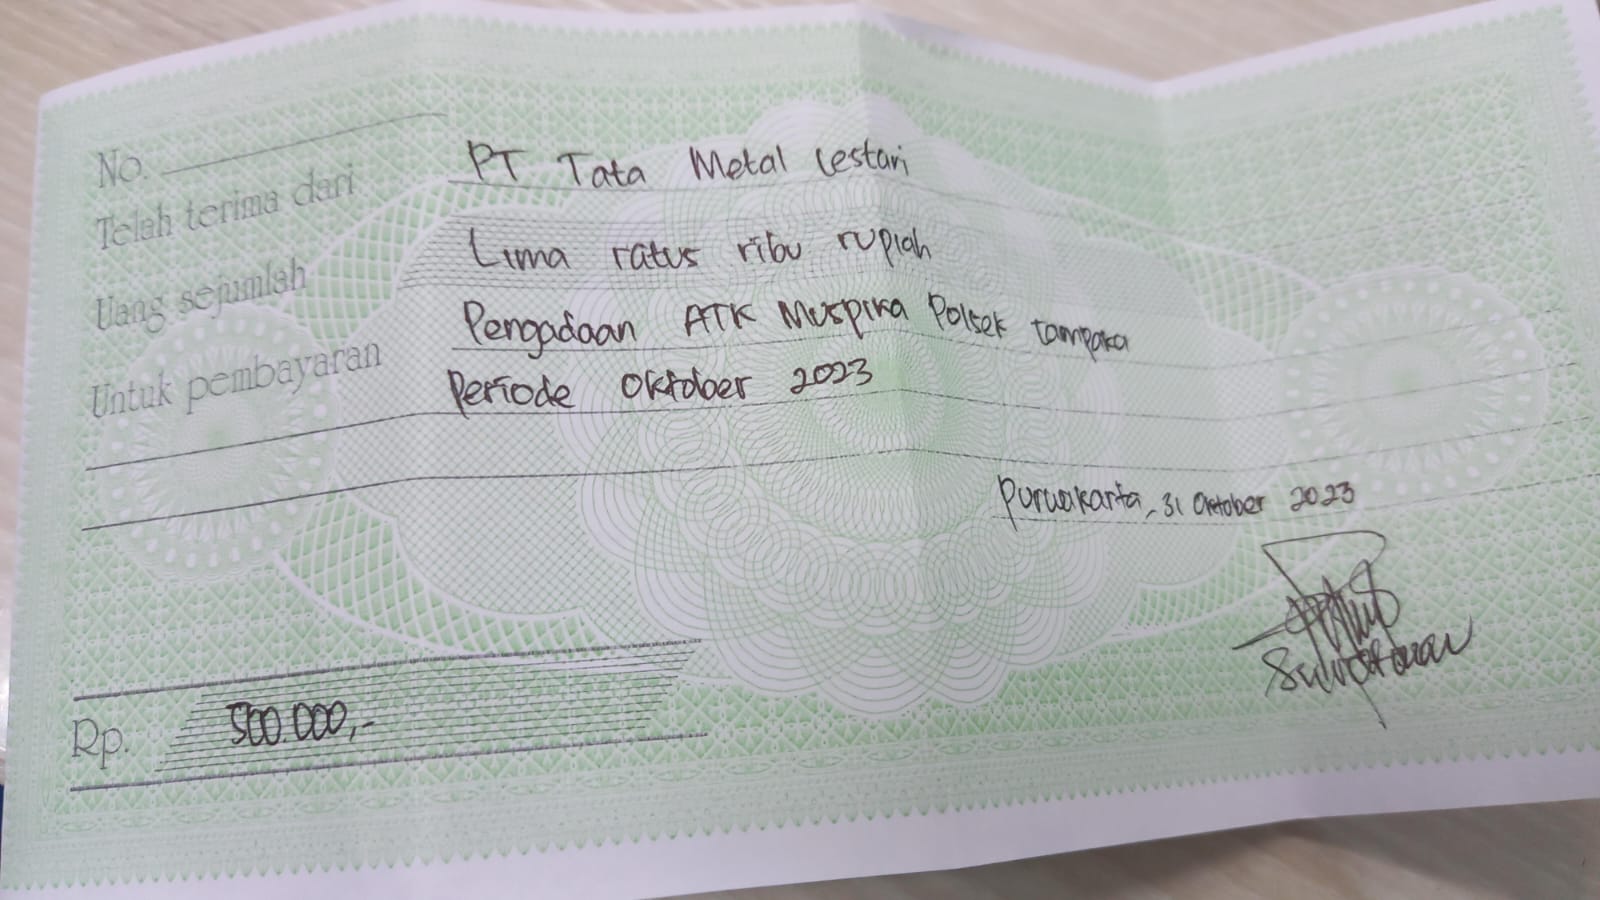 No.
Telah terima dari PT Tata Metal Lestari
Uang sejumlah Lima ratus ribu rupiah
Untuk pembayaran Pengadaan ATK Muspika Polsek tampaka
Periode Oktober 2023
Purwakarta, 31 Oktober 2023
Rp. 500.000,-